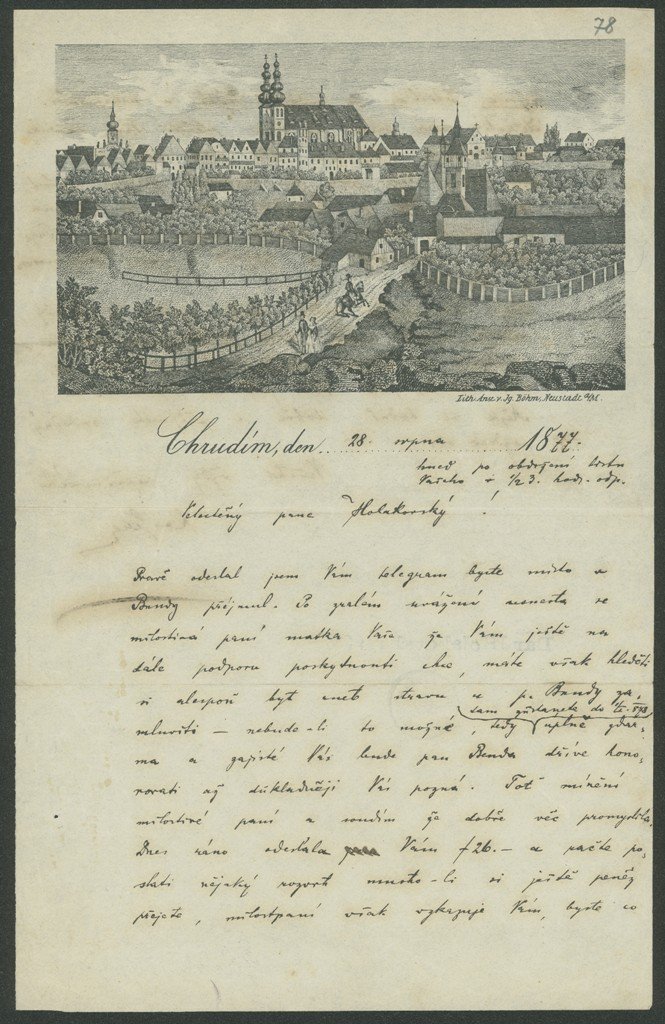 78
Lith. Anst. v. Ig. Böhm, Neustadt a/M.
Chrudim, den 28. srpna 1877.
hned po obdržení listu
Vašeho v 1/2 3. hod. odp.
Velectěný pane Holakovský!
Právě odeslal jsem Vám telegram byste místo u
Bendy přijmul. Po zralém uvážení usnesla se
milostivá paní matka Vaše že Vám ještě na
dále podporu poskytnouti chce, máte však hleděti
si alespoň byt aneb stravu u p. Bendy za,
sam zůstanete do
mluviti – nebude-li to možné, tedy úplně zdar,
ma a zajisté Vás bude pan Benda dříve hono,
rovati až důkladněji Vás pozná. Toť mínění
milostivé paní a soudím že dobře věc promyslila.
Dnes ráno odeslala Vám f 26.– a račte po,
slati nějaký rozvrh mnoho-li si ještě peněz
přejete, milostpaní však vzkazuje Vám, byste co